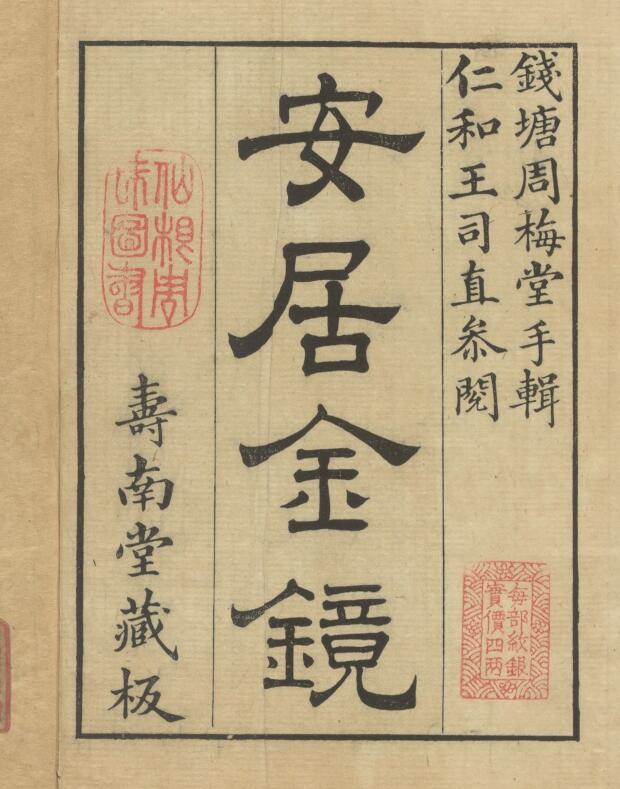 錢塘周梅堂手輯
仁和王司直叅閱
安居金鏡
壽南堂藏板
每部紋銀
實價四兩